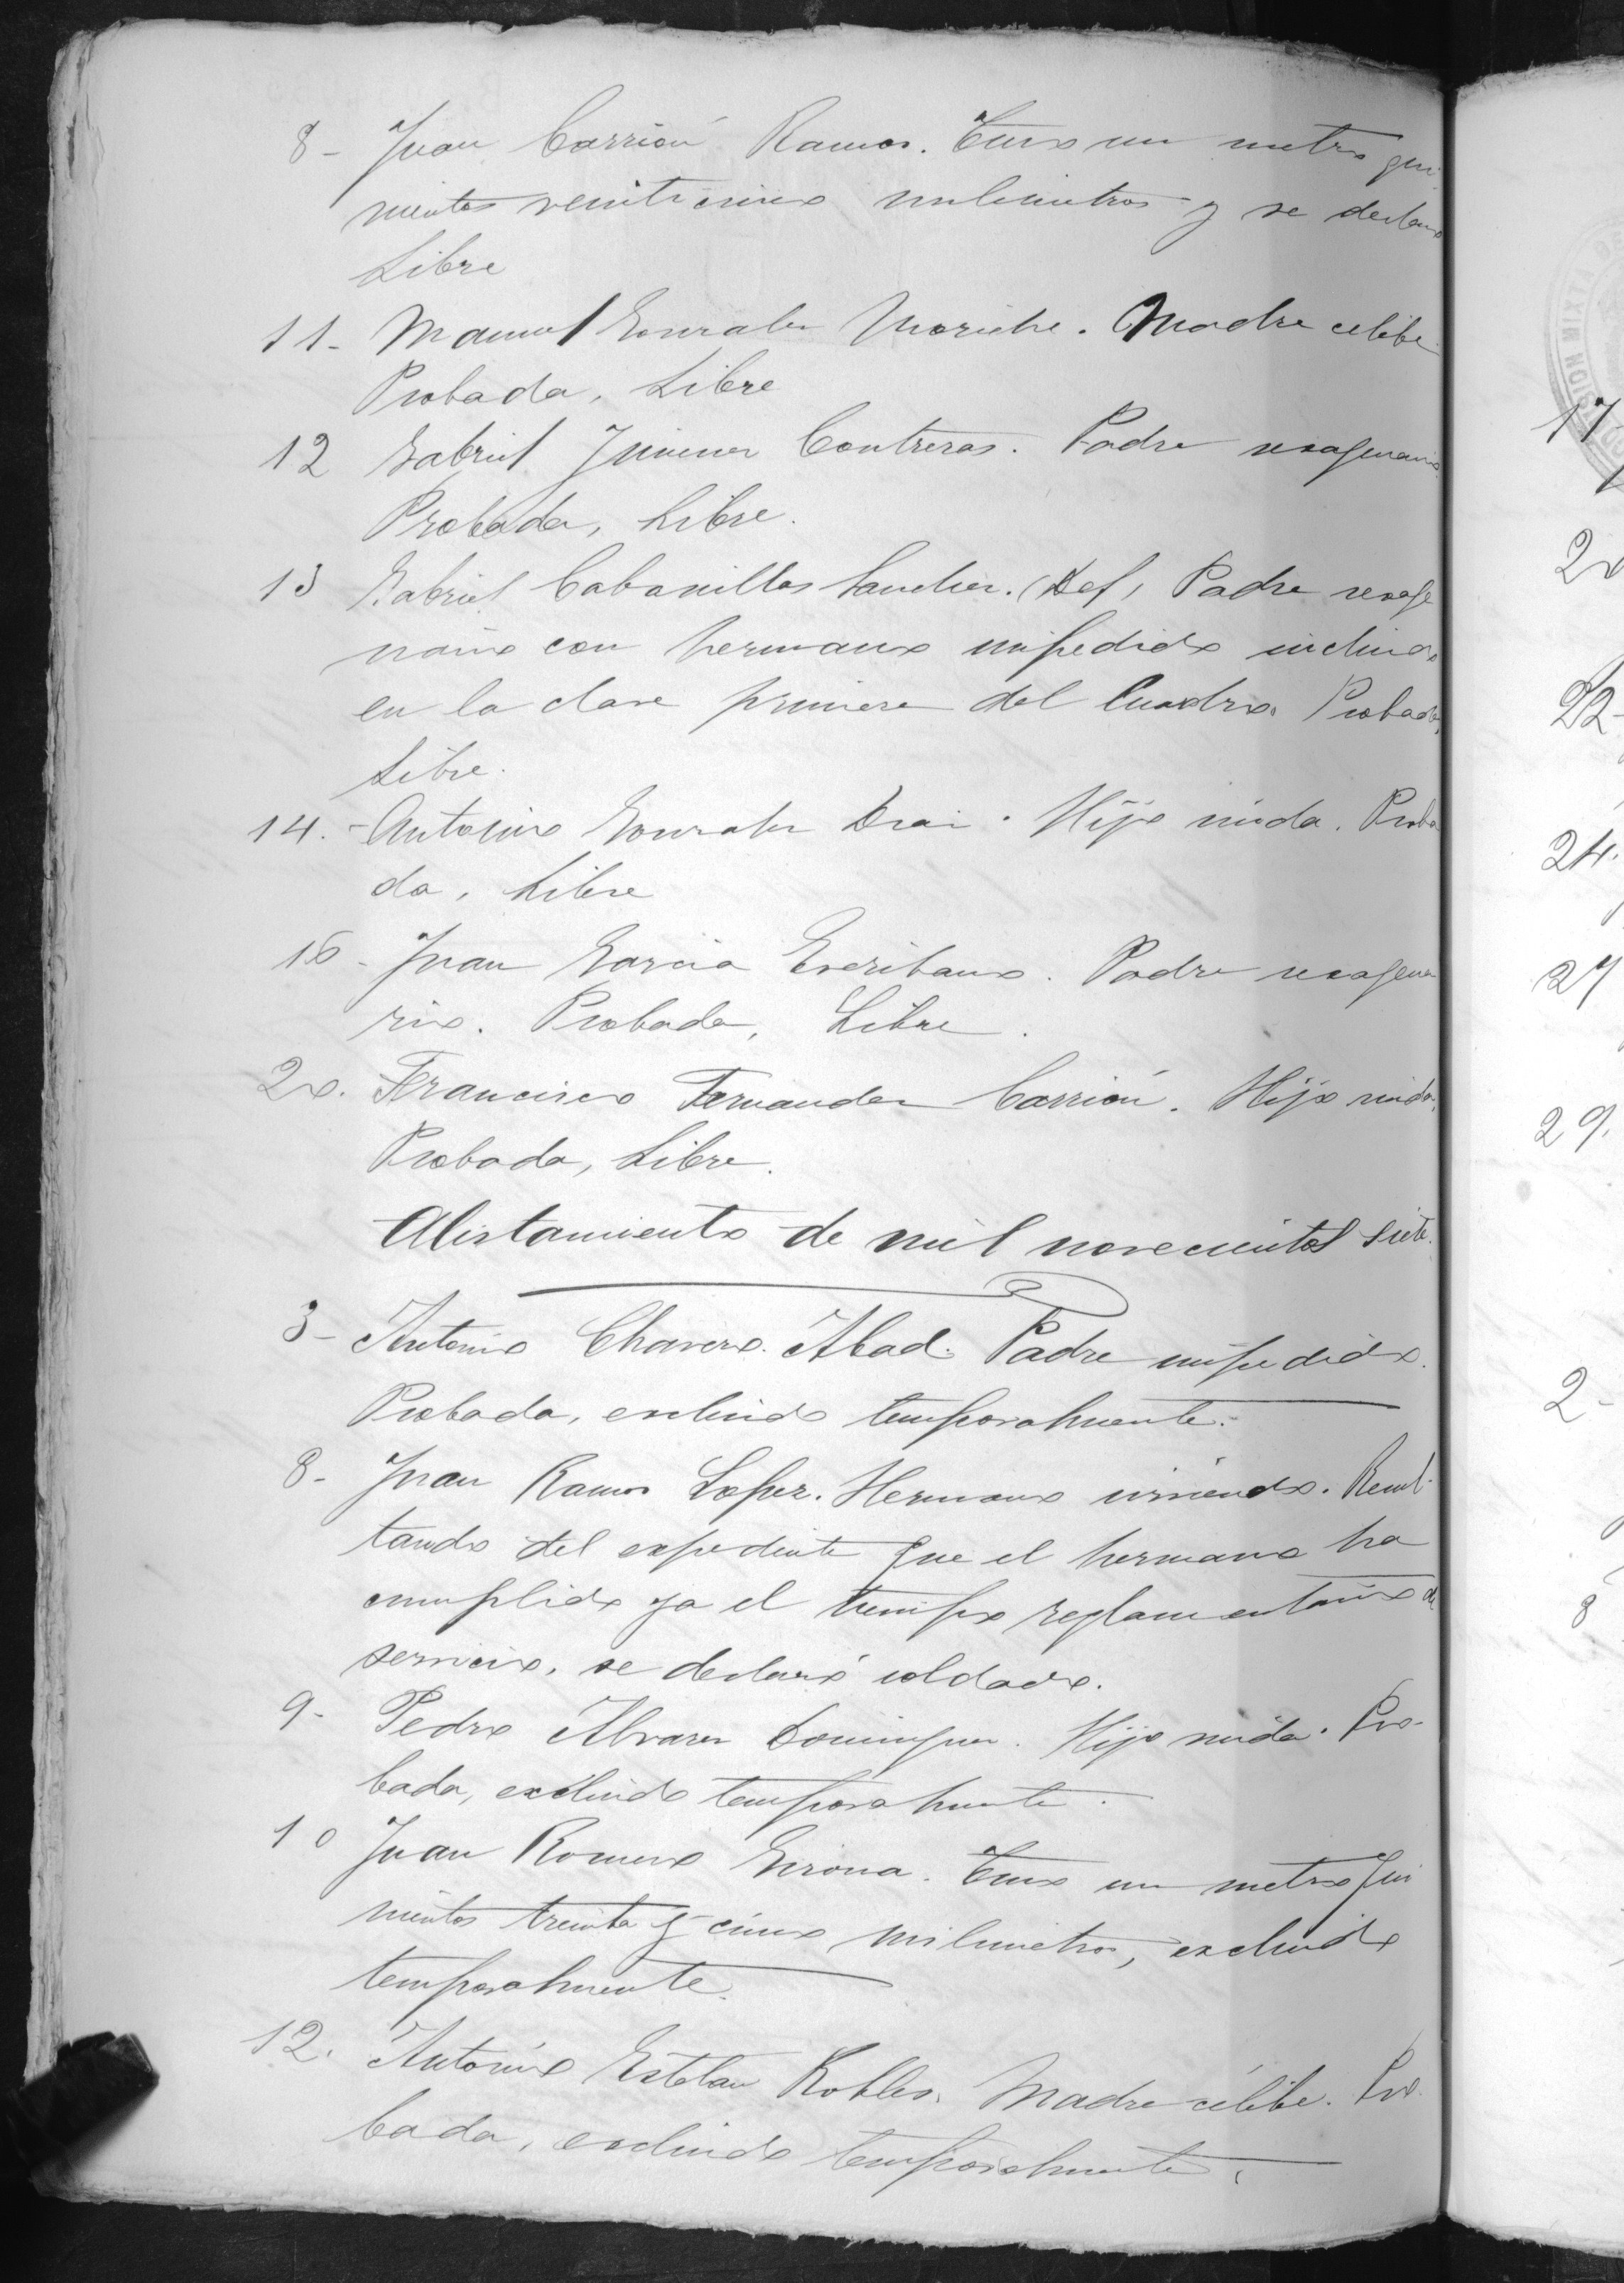 8- Juan Carrión Ramos. Tuvo un metro qui
nientos veinticinco milimetros y se declaró
Libre
11- Manuel Gonzalez Moriche. Madre celibe
Probada, Libre
12 Gabriel Jimenez Contreras. Padre sexagenario
Probada, Libre.
13 Gabriel Cabanillas Sanchez. (Def) Padre sexage
nario con hermano impedido incluido
en la clase primera del Cuadro. Probada,
Libre.
14. Antonio Gonzalez Diaz. Hijo viuda. Proba
da, Libre
16- Juan Garcia Escribano. Padre sexagena
rio. Probada, Libre.
20. Francisco Fernandez Carrión. Hijo viuda.
Probada, Libre.
Alistamiento de mil novecientos siete.
3- Antonio Chavero Abad. Padre impedido.
Probada, excluido temporalmente.
8- Juan Ramos Lopez. Hermano sirviendo. Resul-
tando del expediente que el hermano ha
cumplido ya el tiempo reglamentario de
servicio, se declaró soldado.
9- Pedro Alvarez Dominguez. Hijo viuda. Pro-
bada, excluido temporalmente.
10 Juan Romero Girona. Tuvo un metro qui
nientos treinta y cinco milimetros, excluido
temporalmente.
12. Antonio Esteban Robles. Madre célibe. Pro
bada, excluido temporalmente.
17
20
22-
24.
27
29.
2-
8